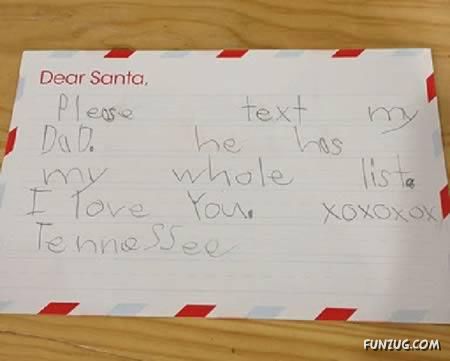 Dear Santa,
Please text my
DaD. he has
my whole list.
I love You. xoxoxox
Tennessee
FUNZUG.COM